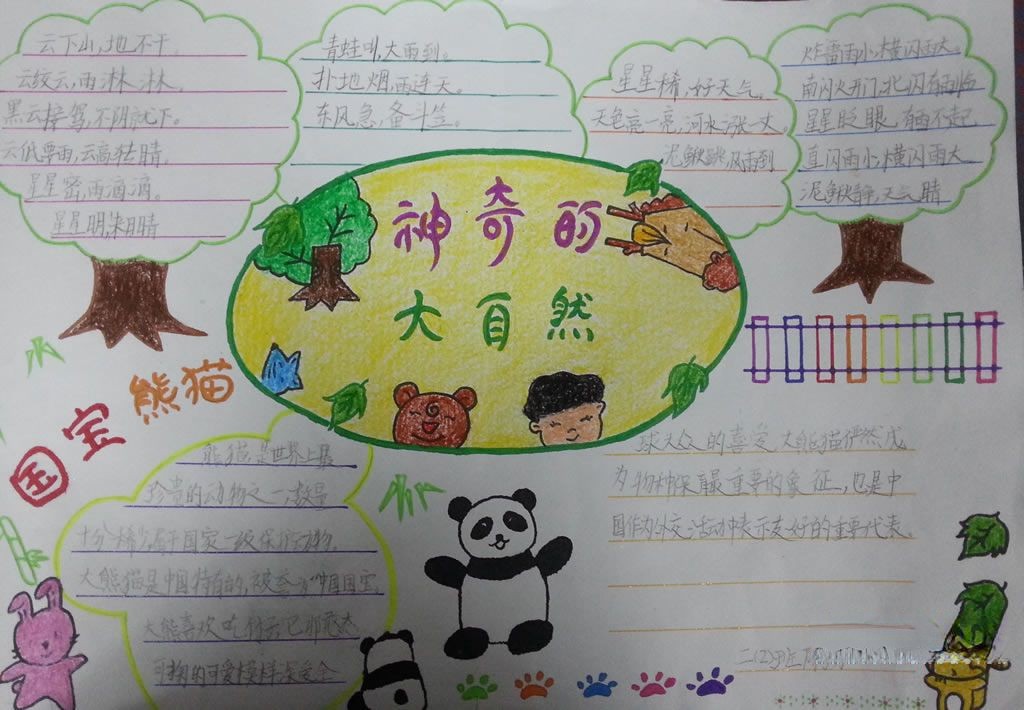 云下山,地不干。
云绞云,雨淋淋。
黑云接驾,不阴就下。
云低要雨,云高转晴。
星星密,雨滴滴。
星星明,来日晴
青蛙叫,大雨到。
扑地烟,雨连天。
东风急,备斗笠。
星星稀,好天气。
天色亮一亮,河水涨一丈。
泥鳅跳,风雨到
炸雷雨小,横闪雨大。
南闪火开门,北闪有雨临
星星眨眼,有雨不起
直闪雨小,横闪雨大
泥鳅静,天气晴
神奇的
大自然
国宝熊猫
熊猫是世界上最
珍贵的动物之一,数量
十分稀少,属于国家一级保护动物,
大熊猫是中国特有的,被益为"中国国宝
大熊喜欢吃竹子,它那憨态
可掬的可爱模样深受全
球大众的喜爱,大熊猫俨然成
为物种保护最重要的象征,也是中
国作为外交活动中表示友好的重要代表。
二(2)班